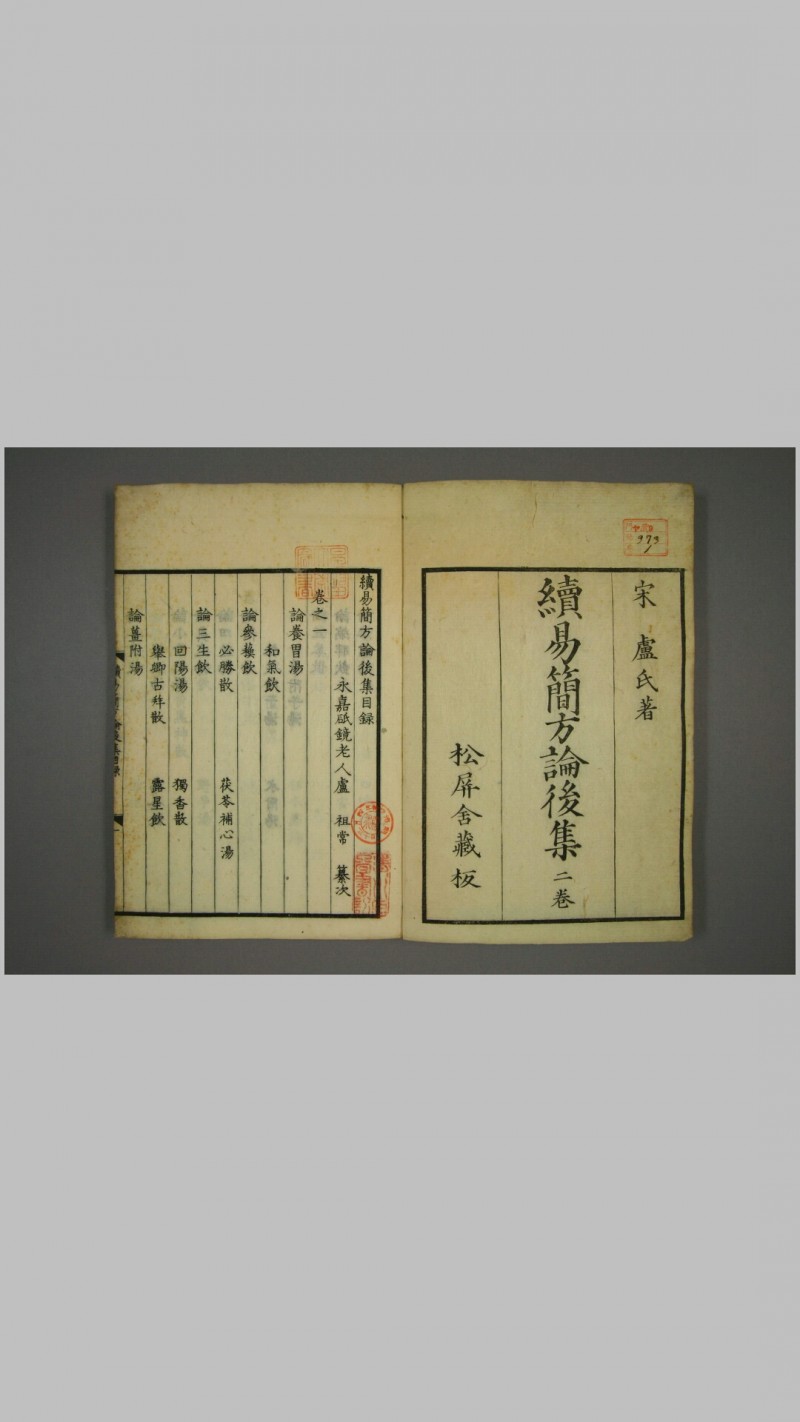 宋 盧氏著
續易簡方論後集 二卷
松屏舍藏板
379
1
續易簡方論後集目録
永嘉砥鏡老人盧 祖常 纂次
卷之一
論養胃湯
和氣飲
論參蘇飲
必勝散 茯苓補心湯
論三生飲
回陽湯 獨香散
舉卿古拜散 露星飲
論薑附湯